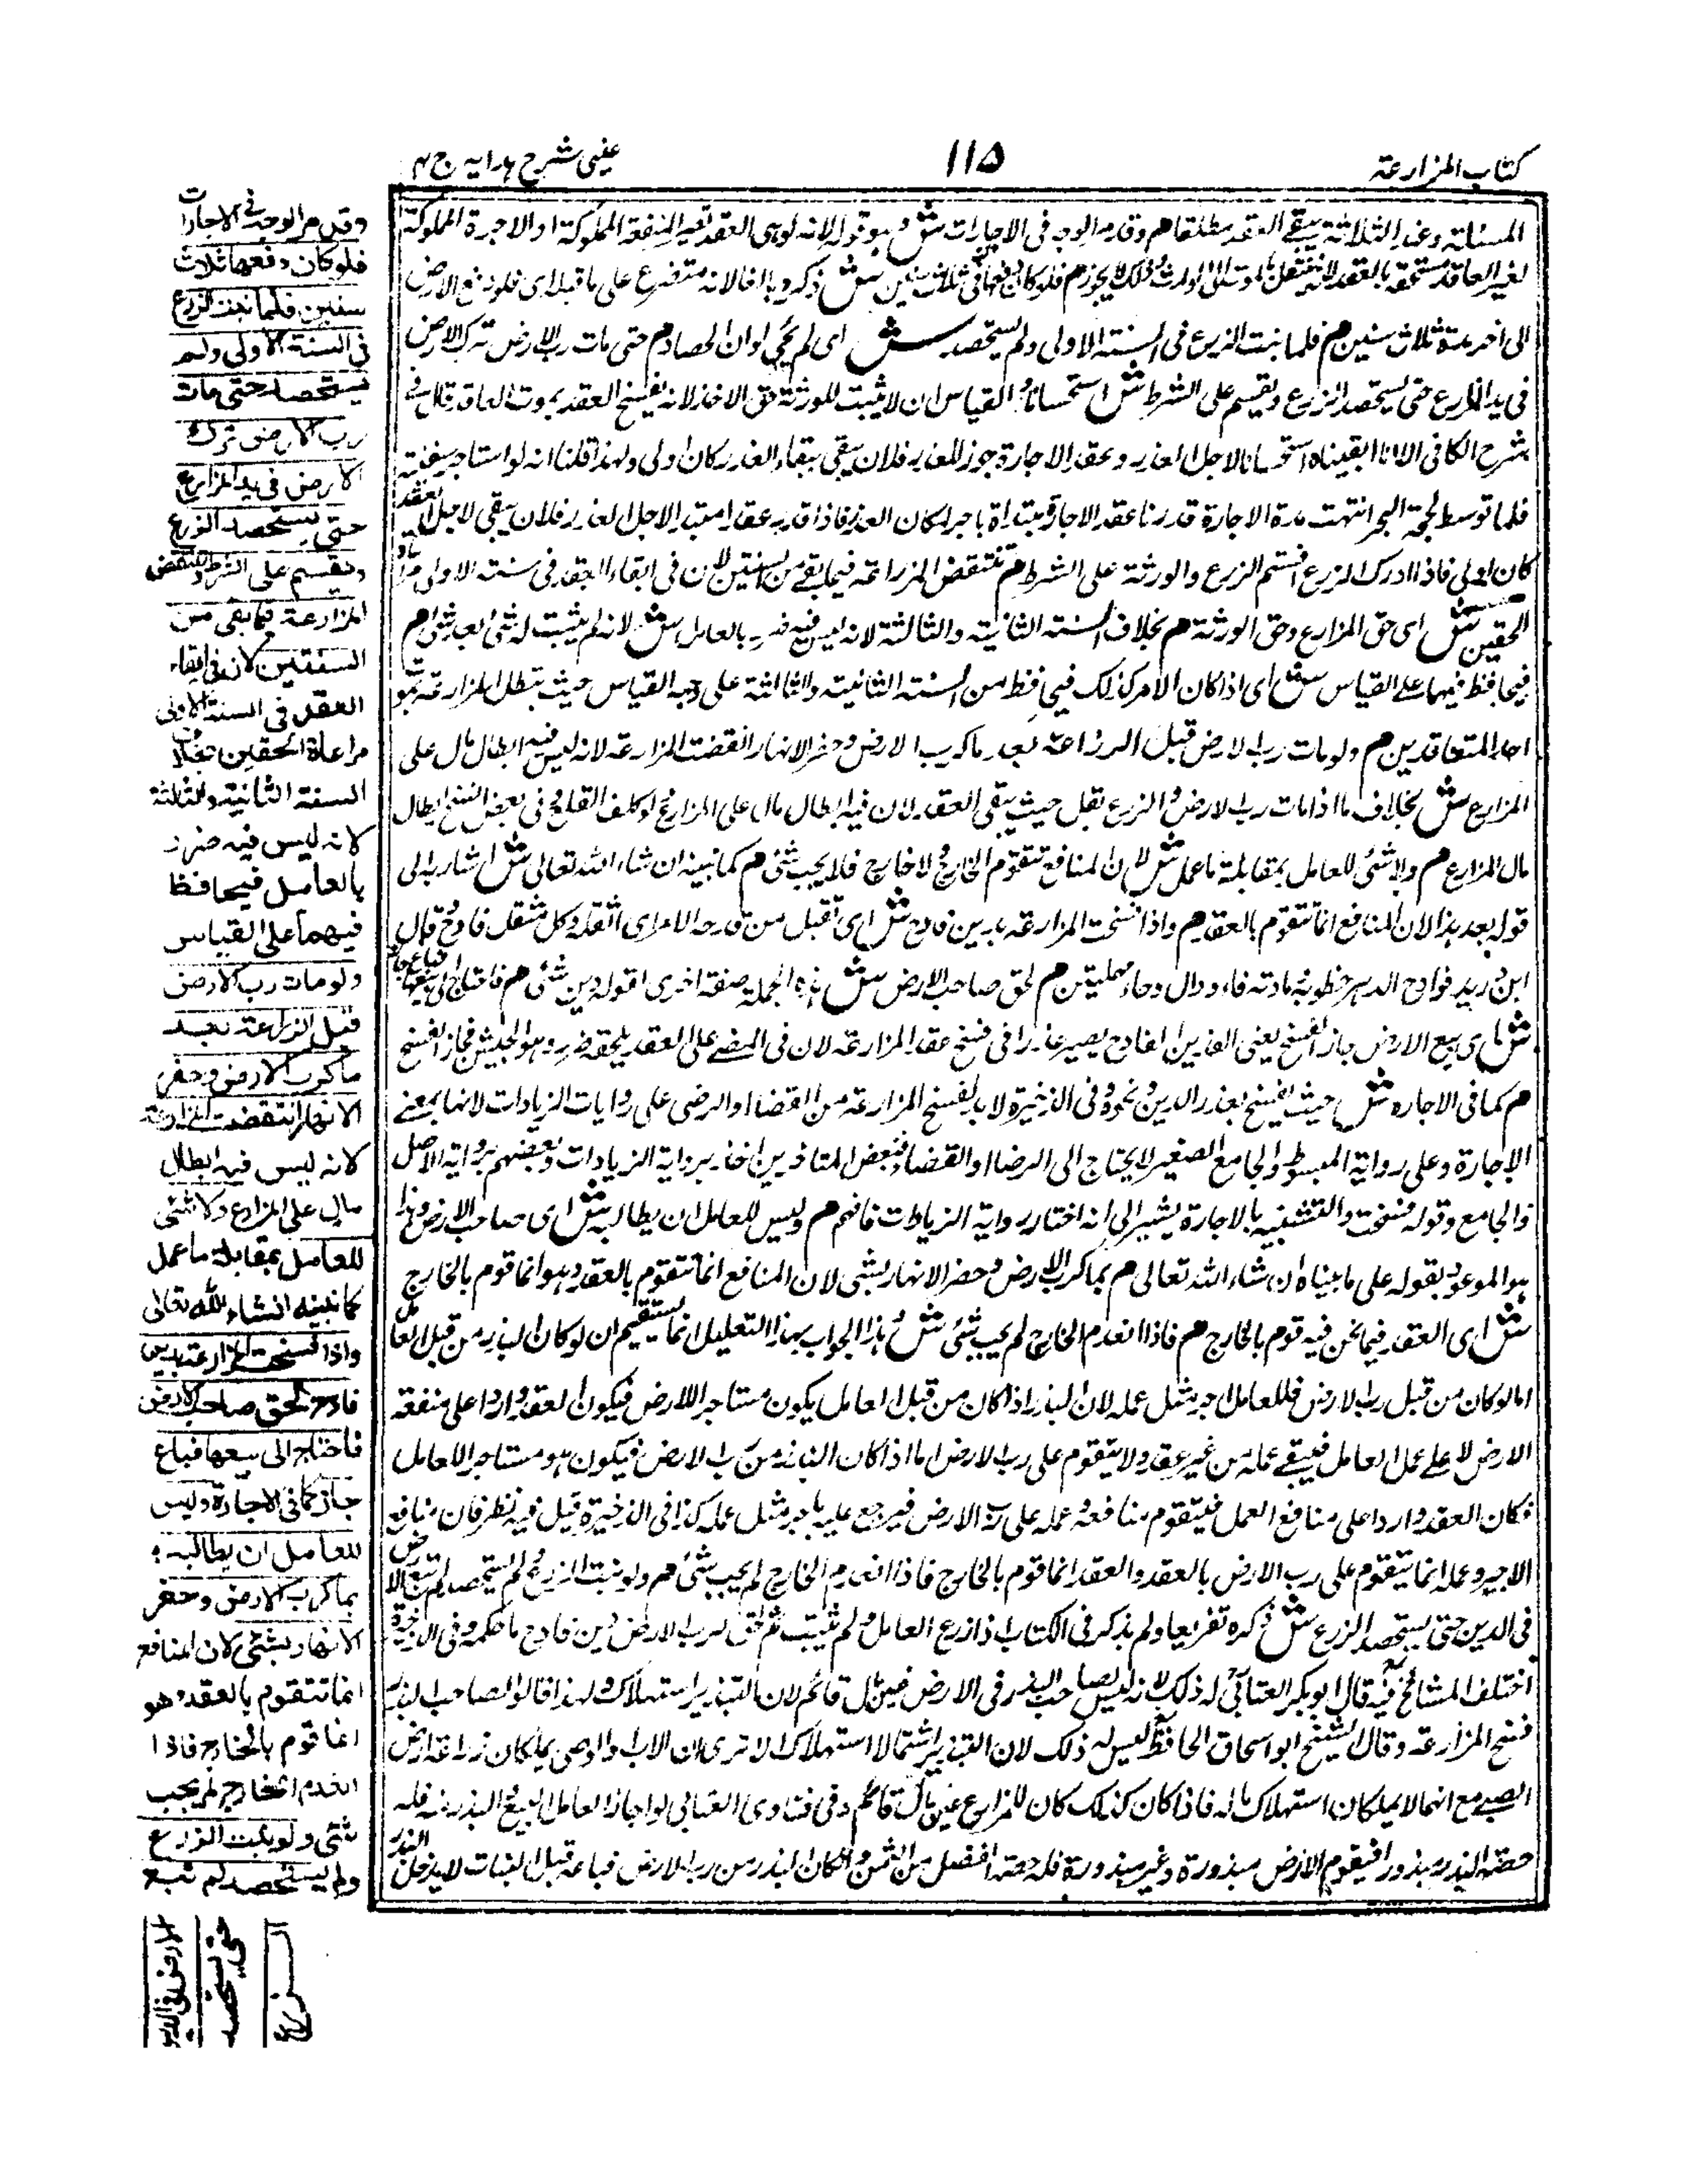 كتاب المزارعة
١١٥
عينى شرح هدايه ج ٤
المسئلة وعند الثلاثة يبقے العقد مطلقا هم وقد مر الوجه فى الاجارات ش وهو قوله لانه لو بقى العقد تصير المنفعة المملوكة او الاجرة المملوكة
لغير العاقد مستحقة بالعقد لانه ينتقل بالموت الى الوارث وذلك لا يجوز م فلو كان دفعها فى ثلاث سنين ش ذكره بالفا لانه متفرع على ما قبله اى فلو دفع الارض
الى اخر مدة ثلاث سنين م فلما نبت الزرع فى السنة الاولى ولم يستحصد ش اى لم يجئ اوان الحصاد م حتى مات رب الارض ترك الارض
فى يد المزارع حتى يستحصد الزرع ويقسم على الشرط ش استحسانا والقياس ان لا يثبت للورثة حق الاخذ لانه ينفسخ العقد بموت العاقد قال فے
شرح الكافى الا انا ابقيناه استحسانا لاجل العذر وعقد الاجارة جوز للعذر فلان يبقى ببقاء العذر كان اولى ولهذا قلنا انه لو استاجر سفينة
فلما توسط لجة البحر انتهت مدة الاجارة قدرنا عقد الاجارة مبتداة باجر لمكان العذر فاذا قدر عقد امبتدا لاجل العذر فلان يبقى لاجل العقد
كان اولى فاذا ادرك الزرع اقتسم الزرع والورثة على الشرط م تنتقض المزارعة فيما بقے من السنتين لان فى ابقاء العقد فى سنته الاولى مراعاة
الحقين ش اى حق المزارع وحق الورثة م بخلاف السنة الثانية والثالثة لانه ليس فيه ضرر بالعامل ش لانه لم يثبت له شئ بعد شئ م
فيحافظ فيهما على القياس ش اى اذا كان الامر كذلك فيحافظ من السنة الثانية والثالثة على وجه القياس حيث تبطل المزارعة بموت
احد المتعاقدين م ولو مات رب الارض قبل الزراعة بعد ما كرب الارض وحفر الانهار انتقضت المزارعة لانه ليس فيه ابطال مال على
المزارع ش بخلاف ما اذا مات رب الارض والزرع بقل حيث يبقى العقد لان فيه ابطال مال على المزارع لو كلف القلع وفى بعض النسخ ابطال
مال المزارع م ولا شئ للعامل بمقابلة ما عمل ش لان المنافع تتقوم بالخارج ولا خارج فلا يجب شئ م كما نبينه ان شاء الله تعالى ش اشار به الى
قوله بعد هذا لان المنافع انما تتقوم بالعقد م واذا فسخت المزارعة بدين فادح ش اى ثقيل من فدحه الامر اى اثقله وكل مثقل فادح قال
ابن دريد فوادح الدهر خطوبه مادته فاء ودال وحاء مهملتين م لحق صاحب الارض ش هذه الجملة صفة اخرى لقوله دين شئ م فاحتاج الى بيعها فباع جاز
ش اى بيع الارض جاز الفسخ يعنى الدين الفادح يصير عذرا فى فسخ عقد المزارعة لان فى المضے على العقد يلحقه ضرر وهو الحبس فجاز الفسخ
م كما فى الاجاره ش حيث يفسخ بعذر الدين ونحوه وفى الذخيرة لا بد لفسخ المزارعة من القضا او الرضى على روايات الزيادات لانها بمعنے
الاجارة وعلى رواية المبسوط والجامع الصغير لا يحتاج الى الرضا او القضا فبعض المتاخرين اخذ برواية الزيادات وبعضهم برواية الاصل
والجامع وقوله فسخت والتشبيه بالاجارة يشير الى انه اختار رواية الزيادات فافهم م وليس للعامل ان يطالبه ش اى صاحب الارض وهذا
هو الموعود بقوله على ما بيناه ان شاء الله تعالى م بما كرب الارض وحفر الانهار بشئ لان المنافع انما تتقوم بالعقد وهو انما قوم بالخارج
ش اى العقد فيما نحن فيه قوم بالخارج م فاذا انعدم الخارج لم يجب شئ ش وهذا الجواب بهذا التعليل انما يستقيم ان لو كان البذر من قبل العامل
اما لو كان من قبل رب الارض فللعامل اجر مثل عمله لان البذر اذا كان من قبل العامل يكون مستاجرا للارض فيكون العقد واردا على منفعة
الارض لا على عمل العامل فيبقے عمله من غير عقد ولا يتقوم على رب الارض اما اذا كان البذر من رب الارض فيكون هو مستاجرا للعامل
فكان العقد واردا على منافع العمل فيتقوم منافعه وعمله على رب الارض فيرجع عليه باجر مثل عمله كذا فى الذخيرة قيل فيه نظر فان منافع
الاجير وعمله انما يتقوم على رب الارض بالعقد والعقد انما قوم بالخارج فاذا انعدم الخارج لم يجب شئ م ولو نبت الزرع ولم يستحصد لم تبع الارض
فى الدين حتى يستحصد الزرع ش ذكره تفريعا ولم يذكر فى الكتاب اذا زرع العامل ولم ينبت ثم لحق لرب الارض دين فادح ما حكمه وفى الذخيرة
اختلف المشائخ فيه قال ابو بكر العتابى له ذلك لانه ليس لصاحب البذر فى الارض عين مال قائم لان التبذير استهلاك ولهذا قالوا لصاحب البذر
فسخ المزارعة وقال الشيخ ابو اسحاق الحافظ ليس له ذلك لان التبذير اشتمالا استهلاك الا ترى ان الاب والوصى يملكان زراعة ارض
الصبے مع انهما لا يملكان استهلاك ماله فاذا كان كذلك كان للمزارع عين مال قائم وفى فتاوى العتابى لو اجاز العامل البيع والبذر منه فله
حصة البذر مبذورا فيقوم الارض مبذورة وغير مبذورة فله حصة افضل من الثمن وان كان البذر من رب الارض فباعه قبل النبات لا يدخل البذر
وقد مر الوجه فى الاجارات
فلو كان دفعها ثلاث
سنين فلما نبت الزرع
فى السنة الاولى ولم
يستحصد حتى مات
رب الارض ترك
الارض فى يد المزارع
حتى يستحصد الزرع
ويقسم على الشرط وتنتقض
المزارعة فيما بقى من
السنتين لان فى ابقاء
العقد فى السنة الاولى
مراعاة الحقين بخلاف
السنة الثانية والثالثة
لانه ليس فيه ضرر
بالعامل فيحافظ
فيهما على القياس
ولو مات رب الارض
قبل الزراعة بعد
ما كرب الارض وحفر
الانهار انتقضت المزارعة
لانه ليس فيه ابطال
مال على المزارع ولا شئ
للعامل بمقابلة ما عمل
كما نبينه انشاء الله تعالى
واذا فسخت المزارعة بدين
فادح لحق صاحب الارض
فاحتاج الى بيعها فباع
جاز كما فى الاجارة وليس
للعامل ان يطالبه
بما كرب الارض وحفر
الانهار بشئ لان المنافع
انما تتقوم بالعقد وهو
انما قوم بالخارج فاذا
انعدم الخارج لم يجب
شئ ولو نبت الزرع
ولم يستحصد لم تبع
الارض فى الدين
حتى يستحصد
الزرع